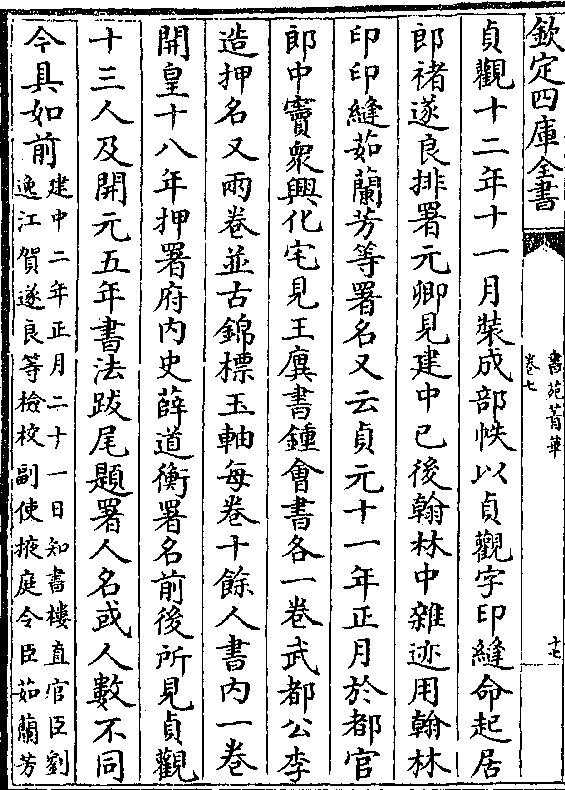 欽定四庫全書
書苑菁華
卷七
十七
貞觀十二年十一月裝成部帙以貞觀字印縫命起居
郎褚遂良排署元卿見建中已後翰林中雜迹用翰林
印印縫茹蘭芳等署名又云貞元十一年正月於都官
郎中竇衆興化宅見王廙書鍾會書各一卷武都公李
造押名又兩卷並古錦標玉軸每卷十餘人書內一卷
開皇十八年押署府內史薛道衡署名前後所見貞觀
十三人及開元五年書法跋尾題署人名或人數不同
今具如前
建中二年正月二十一日知書樓直官臣劉
逸江賀遂良等檢校 副使掖庭令臣茹蘭芳